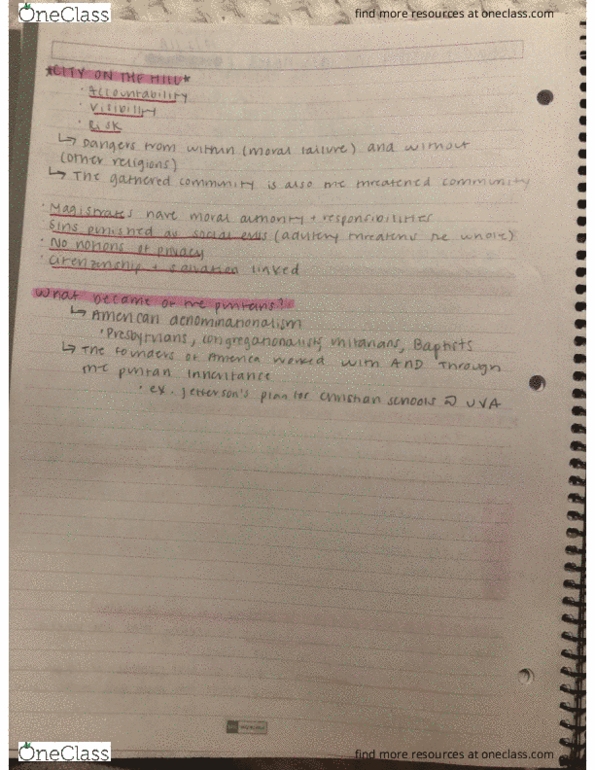 OneClass
find more resources at oneclass.com
*CITY ON THE HILL*
· Accountability
· Visibility
· Risk
↳ Dangers from within (moral failure) and without
(other religions)
↳ The gathered community is also the threatened community
· Magistrates have moral authority + responsibilities
· Sins punished as social evils (adultery threatens the whole)
· No notions of privacy
· Citizenship + salvation linked
What became of the puritans?
↳ American denominationalism
· Presbyterians, congregationalists, unitarians, Baptists
↳ The founders of America worked with AND through
the puritan inheritance
· ex. Jefferson's plan for christian schools @ UVA
OneClass
find more resources at oneclass.com